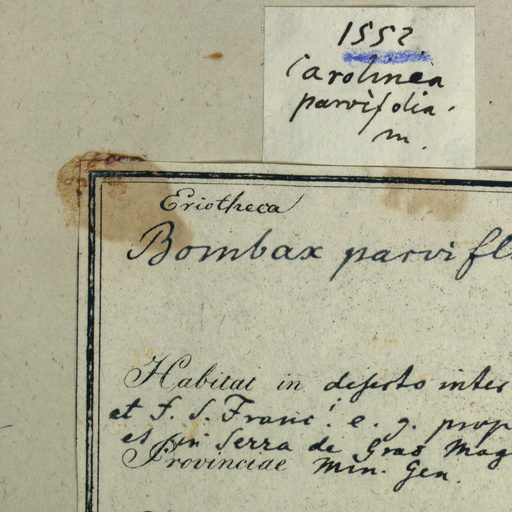 1552
Carolinea
parvifolia.
m.
Eriotheca
Bombax parvifl
Habitat in deserto inter
et f. S. Franc. e. g. prop
et in Serra de Grao Mag
Provinciae Min. Gen.